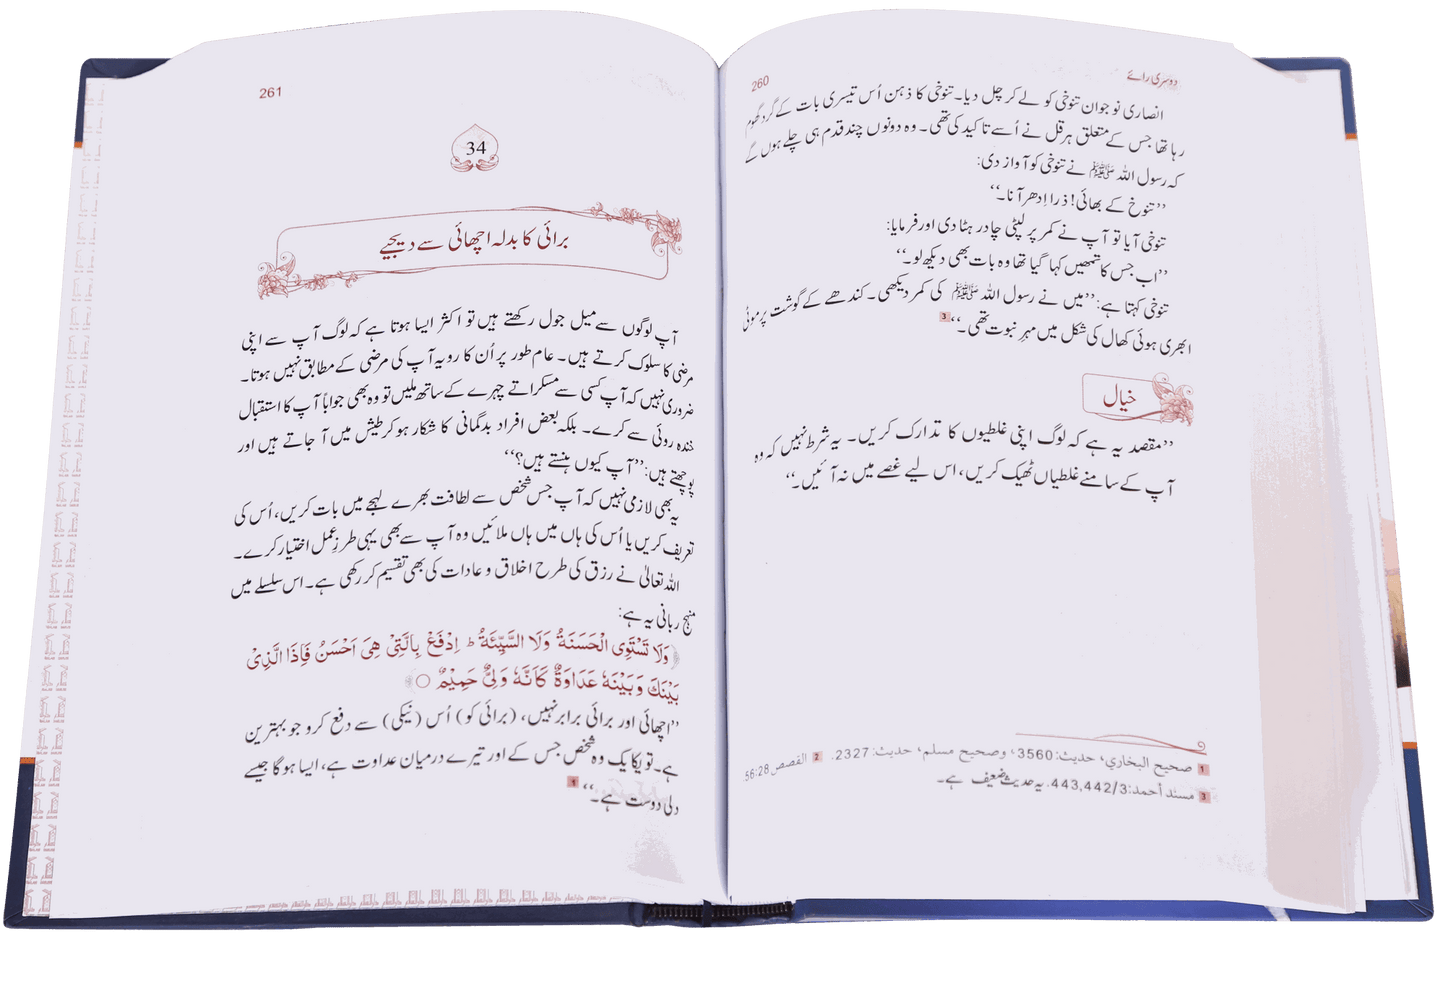 260
دوسری رائے
انصاری نوجوان تنوخی کو لے کر چل دیا۔ تنوخی کا ذہن اُس تیسری بات کے گرد گھوم
رہا تھا جس کے متعلق ہرقل نے اُسے تاکید کی تھی۔ وہ دونوں چند قدم ہی چلے ہوں گے
کہ رسول اللہ ﷺ نے تنوخی کو آواز دی:
’’تنوخ کے بھائی! ذرا اِدھر آنا۔‘‘
تنوخی آیا تو آپ نے کمر پر لپٹی چادر ہٹا دی اور فرمایا:
’’اب جس کا تمھیں کہا گیا تھا وہ بات بھی دیکھ لو۔‘‘
تنوخی کہتا ہے: ’’میں نے رسول اللہ ﷺ کی کمر دیکھی۔ کندھے کے گوشت پر موٹی
ابھری ہوئی کھال کی شکل میں مہرِ نبوت تھی۔‘‘ 3
خیال
’’مقصد یہ ہے کہ لوگ اپنی غلطیوں کا تدارک کریں۔ یہ شرط نہیں کہ وہ
آپ کے سامنے غلطیاں ٹھیک کریں، اس لیے غصے میں نہ آئیں۔‘‘
1 صحيح البخاري، حديث: 3560، وصحيح مسلم، حديث: 2327. 2 القصص 56:28
3 مسند أحمد: 443,442/3. یہ حدیث ضعیف ہے۔
261
34
برائی کا بدلہ اچھائی سے دیجیے
آپ لوگوں سے میل جول رکھتے ہیں تو اکثر ایسا ہوتا ہے کہ لوگ آپ سے اپنی
مرضی کا سلوک کرتے ہیں۔ عام طور پر اُن کا رویہ آپ کی مرضی کے مطابق نہیں ہوتا۔
ضروری نہیں کہ آپ کسی سے مسکراتے چہرے کے ساتھ ملیں تو وہ بھی جواباً آپ کا استقبال
خندہ روئی سے کرے۔ بلکہ بعض افراد بدگمانی کا شکار ہو کر طیش میں آ جاتے ہیں اور
پوچھتے ہیں: ’’آپ کیوں ہنستے ہیں؟‘‘
یہ بھی لازمی نہیں کہ آپ جس شخص سے لطافت بھرے لہجے میں بات کریں، اُس کی
تعریف کریں یا اُس کی ہاں میں ہاں ملائیں وہ آپ سے بھی یہی طرزِ عمل اختیار کرے۔
اللہ تعالیٰ نے رزق کی طرح اخلاق و عادات کی بھی تقسیم کر رکھی ہے۔ اس سلسلے میں
منہج ربانی یہ ہے:
﴿وَلَا تَسْتَوِی الْحَسَنَةُ وَلَا السَّیِّئَةُ ؕ اِدْفَعْ بِالَّتِیْ هِیَ اَحْسَنُ فَاِذَا الَّذِیْ
بَیْنَكَ وَبَیْنَهٗ عَدَاوَةٌ كَاَنَّهٗ وَلِیٌّ حَمِیْمٌ ○﴾
’’اچھائی اور برائی برابر نہیں، (برائی کو) اُس (نیکی) سے دفع کرو جو بہترین
ہے۔ تو یکایک وہ شخص جس کے اور تیرے درمیان عداوت ہے، ایسا ہوگا جیسے
دلی دوست ہے۔‘‘ 1